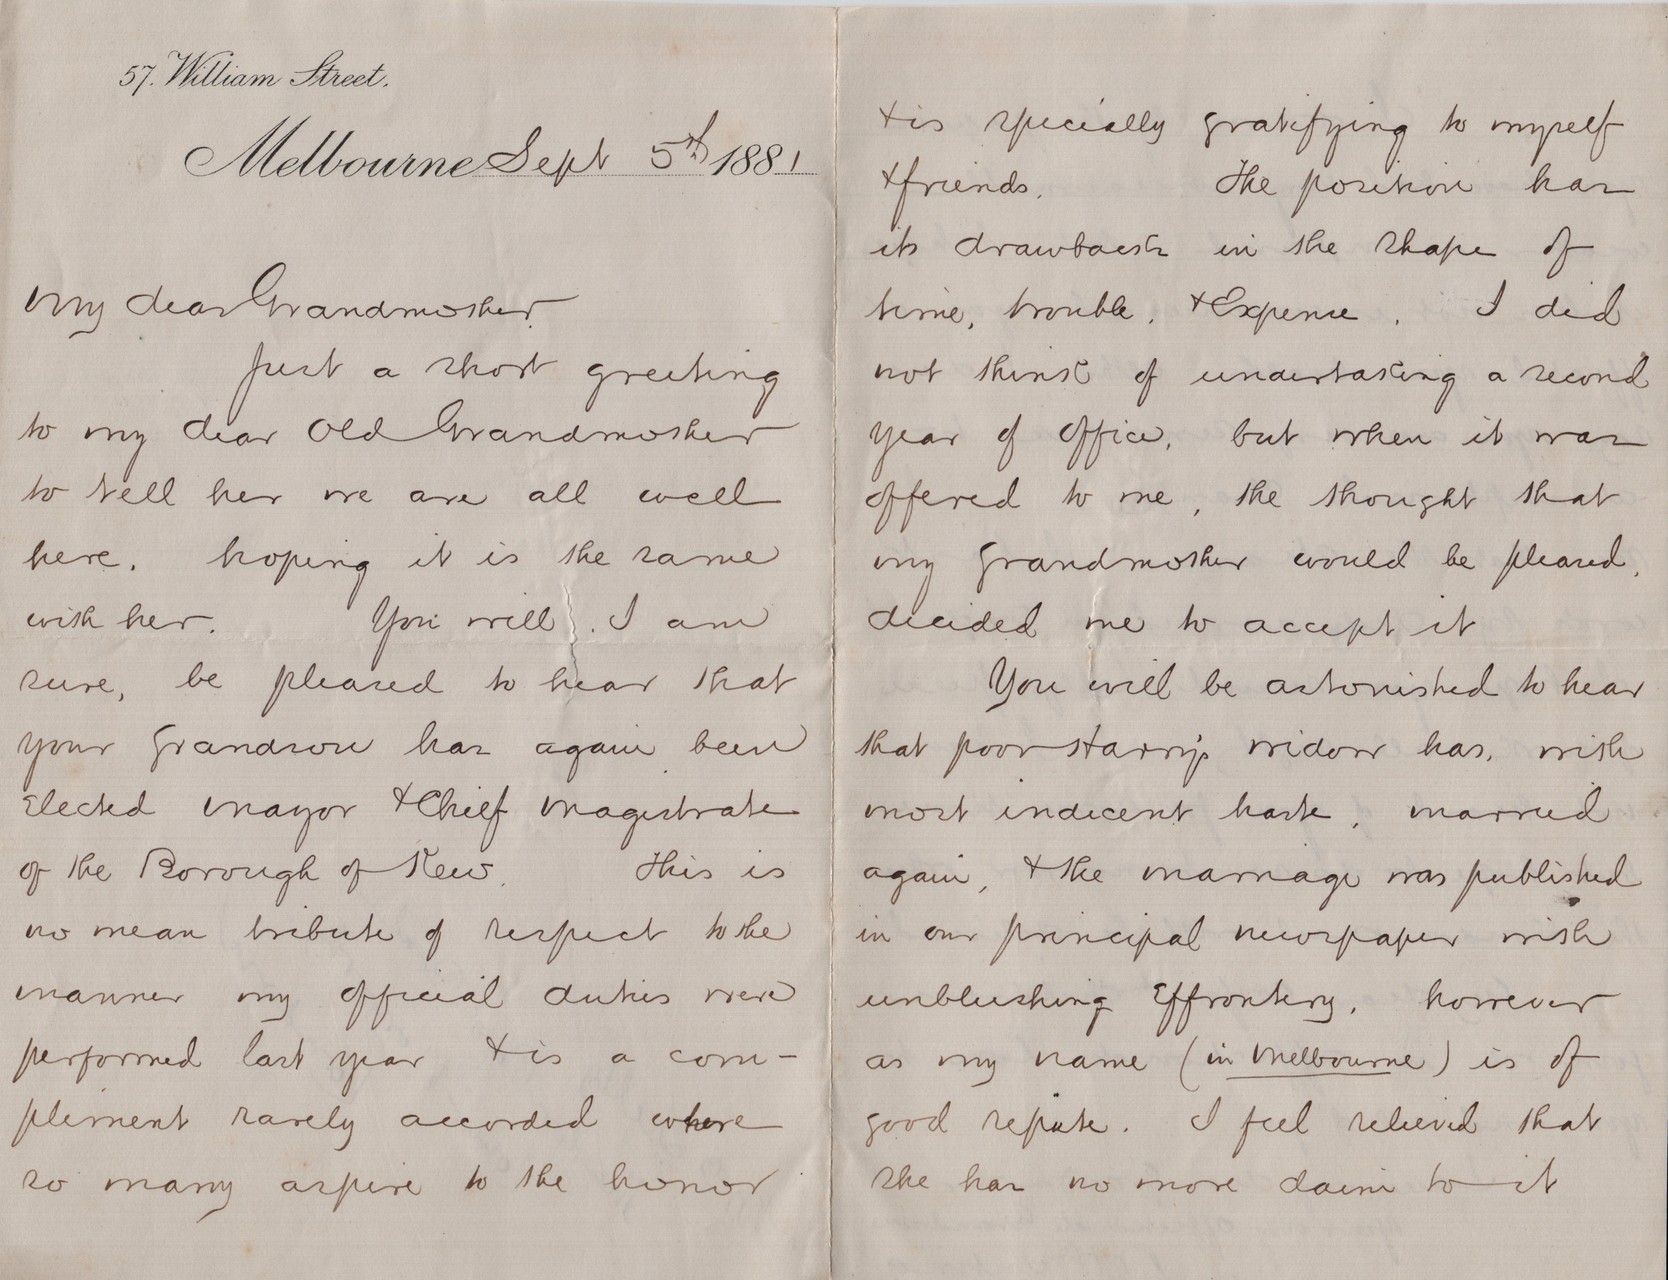 57. William Street.
Melbourne Sept 5th 1881
My dear Grandmother.
Just a short greeting
to my dear Old Grandmother
to tell her we are all well
here. hoping it is the same
with her. You will, I am
sure, be pleased to hear that
your Grandson has again been
Elected Mayor & Chief Magistrate
of the Borough of Kew. This is
no mean tribute of respect to the
manner my official duties were
performed last year & is a com-
pliment rarely accorded where
so many aspire to the honor
& is specially gratifying to myself
& friends. The position has
its drawbacks in the shape of
time, trouble, & Expense. I did
not think of undertaking a second
year of office, but when it was
offered to me, the thought that
my Grandmother would be pleased,
decided me to accept it
You will be astonished to hear
that poor Harry's widow has, with
most indecent haste, married
again, & the marriage was published
in our principal newspaper with
unblushing Effrontery, however
as my name (in Melbourne) is of
good repute. I feel relieved that
she has no more claim to it